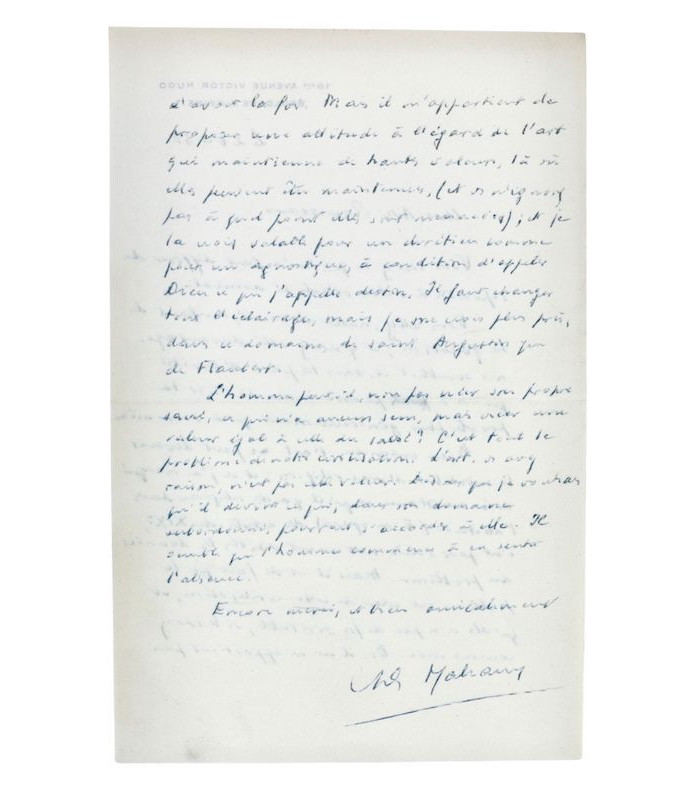 d'avoir la foi. Mais il m'appartient de
proposer une attitude à l'égard de l'art
qui maintienne de hautes valeurs, là où
elles peuvent être maintenues, (et n'ignore
pas à quel point elles sont menacées) ; et je
la crois valable pour un chrétien comme
pour un agnostique, à condition d'appeler
Dieu ce que j'appelle destin. Il faut changer
tout l'éclairage, mais je me crois plus près,
dans ce domaine, de saint Augustin que
de Flaubert.
L'homme peut-il, non pas créer son propre
salut, ce qui n'a aucun sens, mais créer une
valeur égale à celle du salut ? C'est tout le
problème de notre civilisation. L'art, vous avez
raison, n'est pas que je voudrais
qu'il devînt ce qui, dans son domaine
subordonné, pourrait s'accorder à elle. Il
semble que l'homme commence à en sentir
l'absence.
Encore merci, et bien amicalement
Malraux
19bis AVENUE VICTOR HUGO